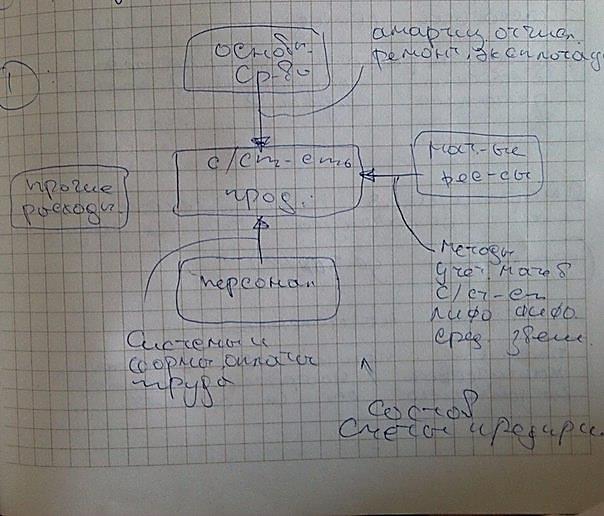 1
основн.
ср-во
амортиз. отчисл.
ремонт, эксплотац
с/ст-сть
прод.
мат.-ые
рес-сы
прочие
расходы.
персонал
методы
учет. мат. в
с/ст-сть
лифо фифо.
сред. звеш.
Системы и
формы оплаты
труда
состав
сметы предпри.